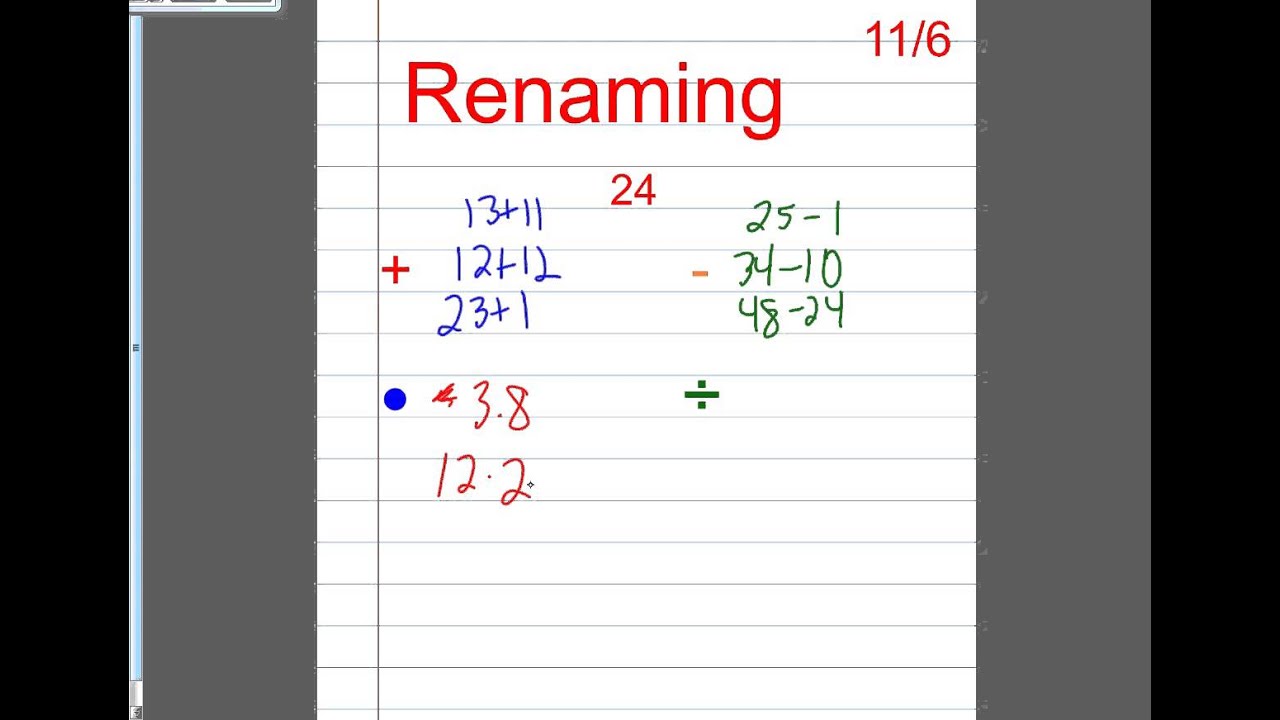 11/6
Renaming
24
13+11
+ 12+12
23+1
25-1
- 34-10
48-24
• 3·8
12·2
÷